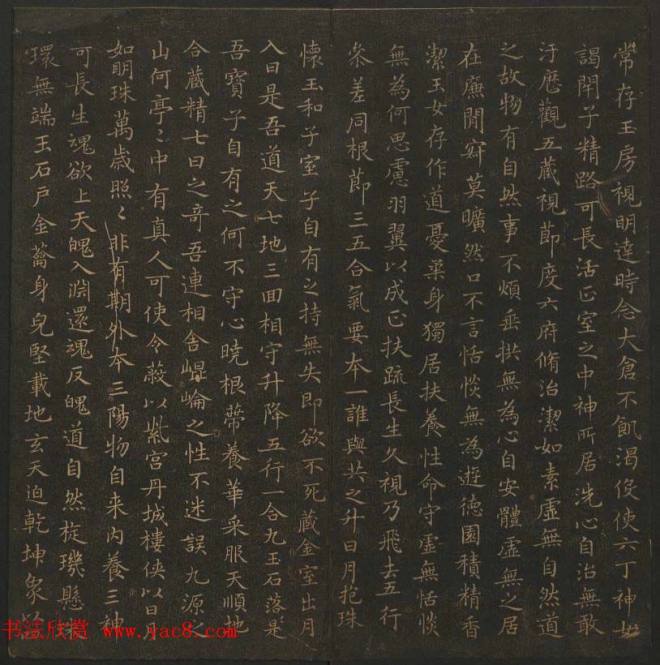 常存玉房視明達時念大倉不飢渴役使六丁神女
謁閇子精路可長活正室之中神所居洗心自治無敢
汙歷觀五藏視節度六府脩治潔如素虛無自然道
之故物有自然事不煩垂拱無為心自安體虛無之居
在廉閒寂莫曠然口不言恬惔無為遊德園積精香
潔玉女存作道憂柔身獨居扶養性命守虛無恬惔
無為何思慮羽翼以成正扶疏長生久視乃飛去五行
參差同根節三五合氣要本一誰與共之升日月抱珠
懷玉和子室子自有之持無失即欲不死藏金室出月
入日是吾道天七地三回相守升降五行一合九玉石落是
吾寶子自有之何不守心曉根蔕養華采服天順地
合藏精七日之奇吾連相舍崐崘之性不迷誤九源之
山何亭〻中有真人可使令蔽以紫宮丹城樓俠以日月
如明珠萬歲照〻非有期外本三陽物自来內養三神
可長生魂欲上天魄入淵還魂反魄道自然旋璣懸珠
環無端玉石戶金籥身皃堅載地玄天迫乾坤象以
书法欣赏 www.yac8.com